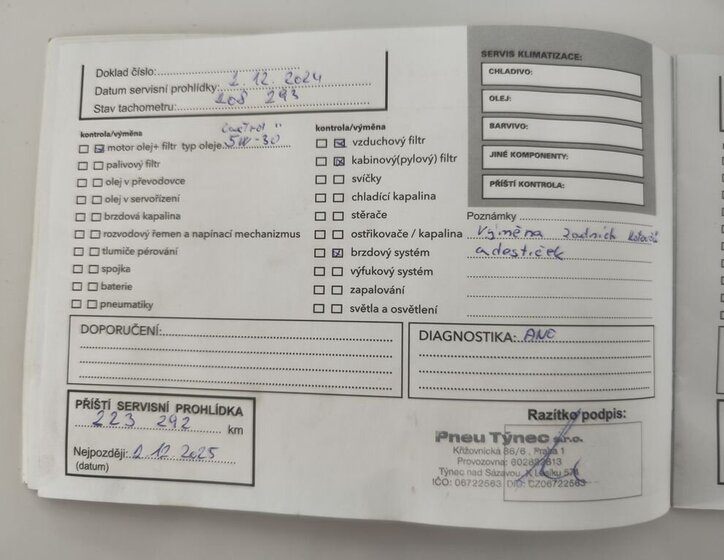 Doklad číslo:
Datum servisní prohlídky: 2.12.2024
Stav tachometru: 208 293
kontrola/výměna
motor olej+ filtr typ oleje: Castrol 5W-30
palivový filtr
olej v převodovce
olej v servořízení
brzdová kapalina
rozvodový řemen a napínací mechanizmus
tlumiče pérování
spojka
baterie
pneumatiky
kontrola/výměna
vzduchový filtr
kabinový(pylový) filtr
svíčky
chladící kapalina
stěrače
ostřikovače / kapalina
brzdový systém
výfukový systém
zapalování
světla a osvětlení
SERVIS KLIMATIZACE:
CHLADIVO:
OLEJ:
BARVIVO:
JINÉ KOMPONENTY:
PŘÍŠTÍ KONTROLA:
Poznámky
Výměna zadních kotoučů
a destiček
DOPORUČENÍ:
DIAGNOSTIKA: ANO
PŘÍŠTÍ SERVISNÍ PROHLÍDKA
223 292 km
Nejpozději: 2.12.2025
(datum)
Razítko podpis:
Pneu Týnec s.r.o.
Křižovnická 86/6, Praha 1
Provozovna:
Týnec nad Sázavou, K Lesíku
IČO: 06722563 DIČ: CZ06722563